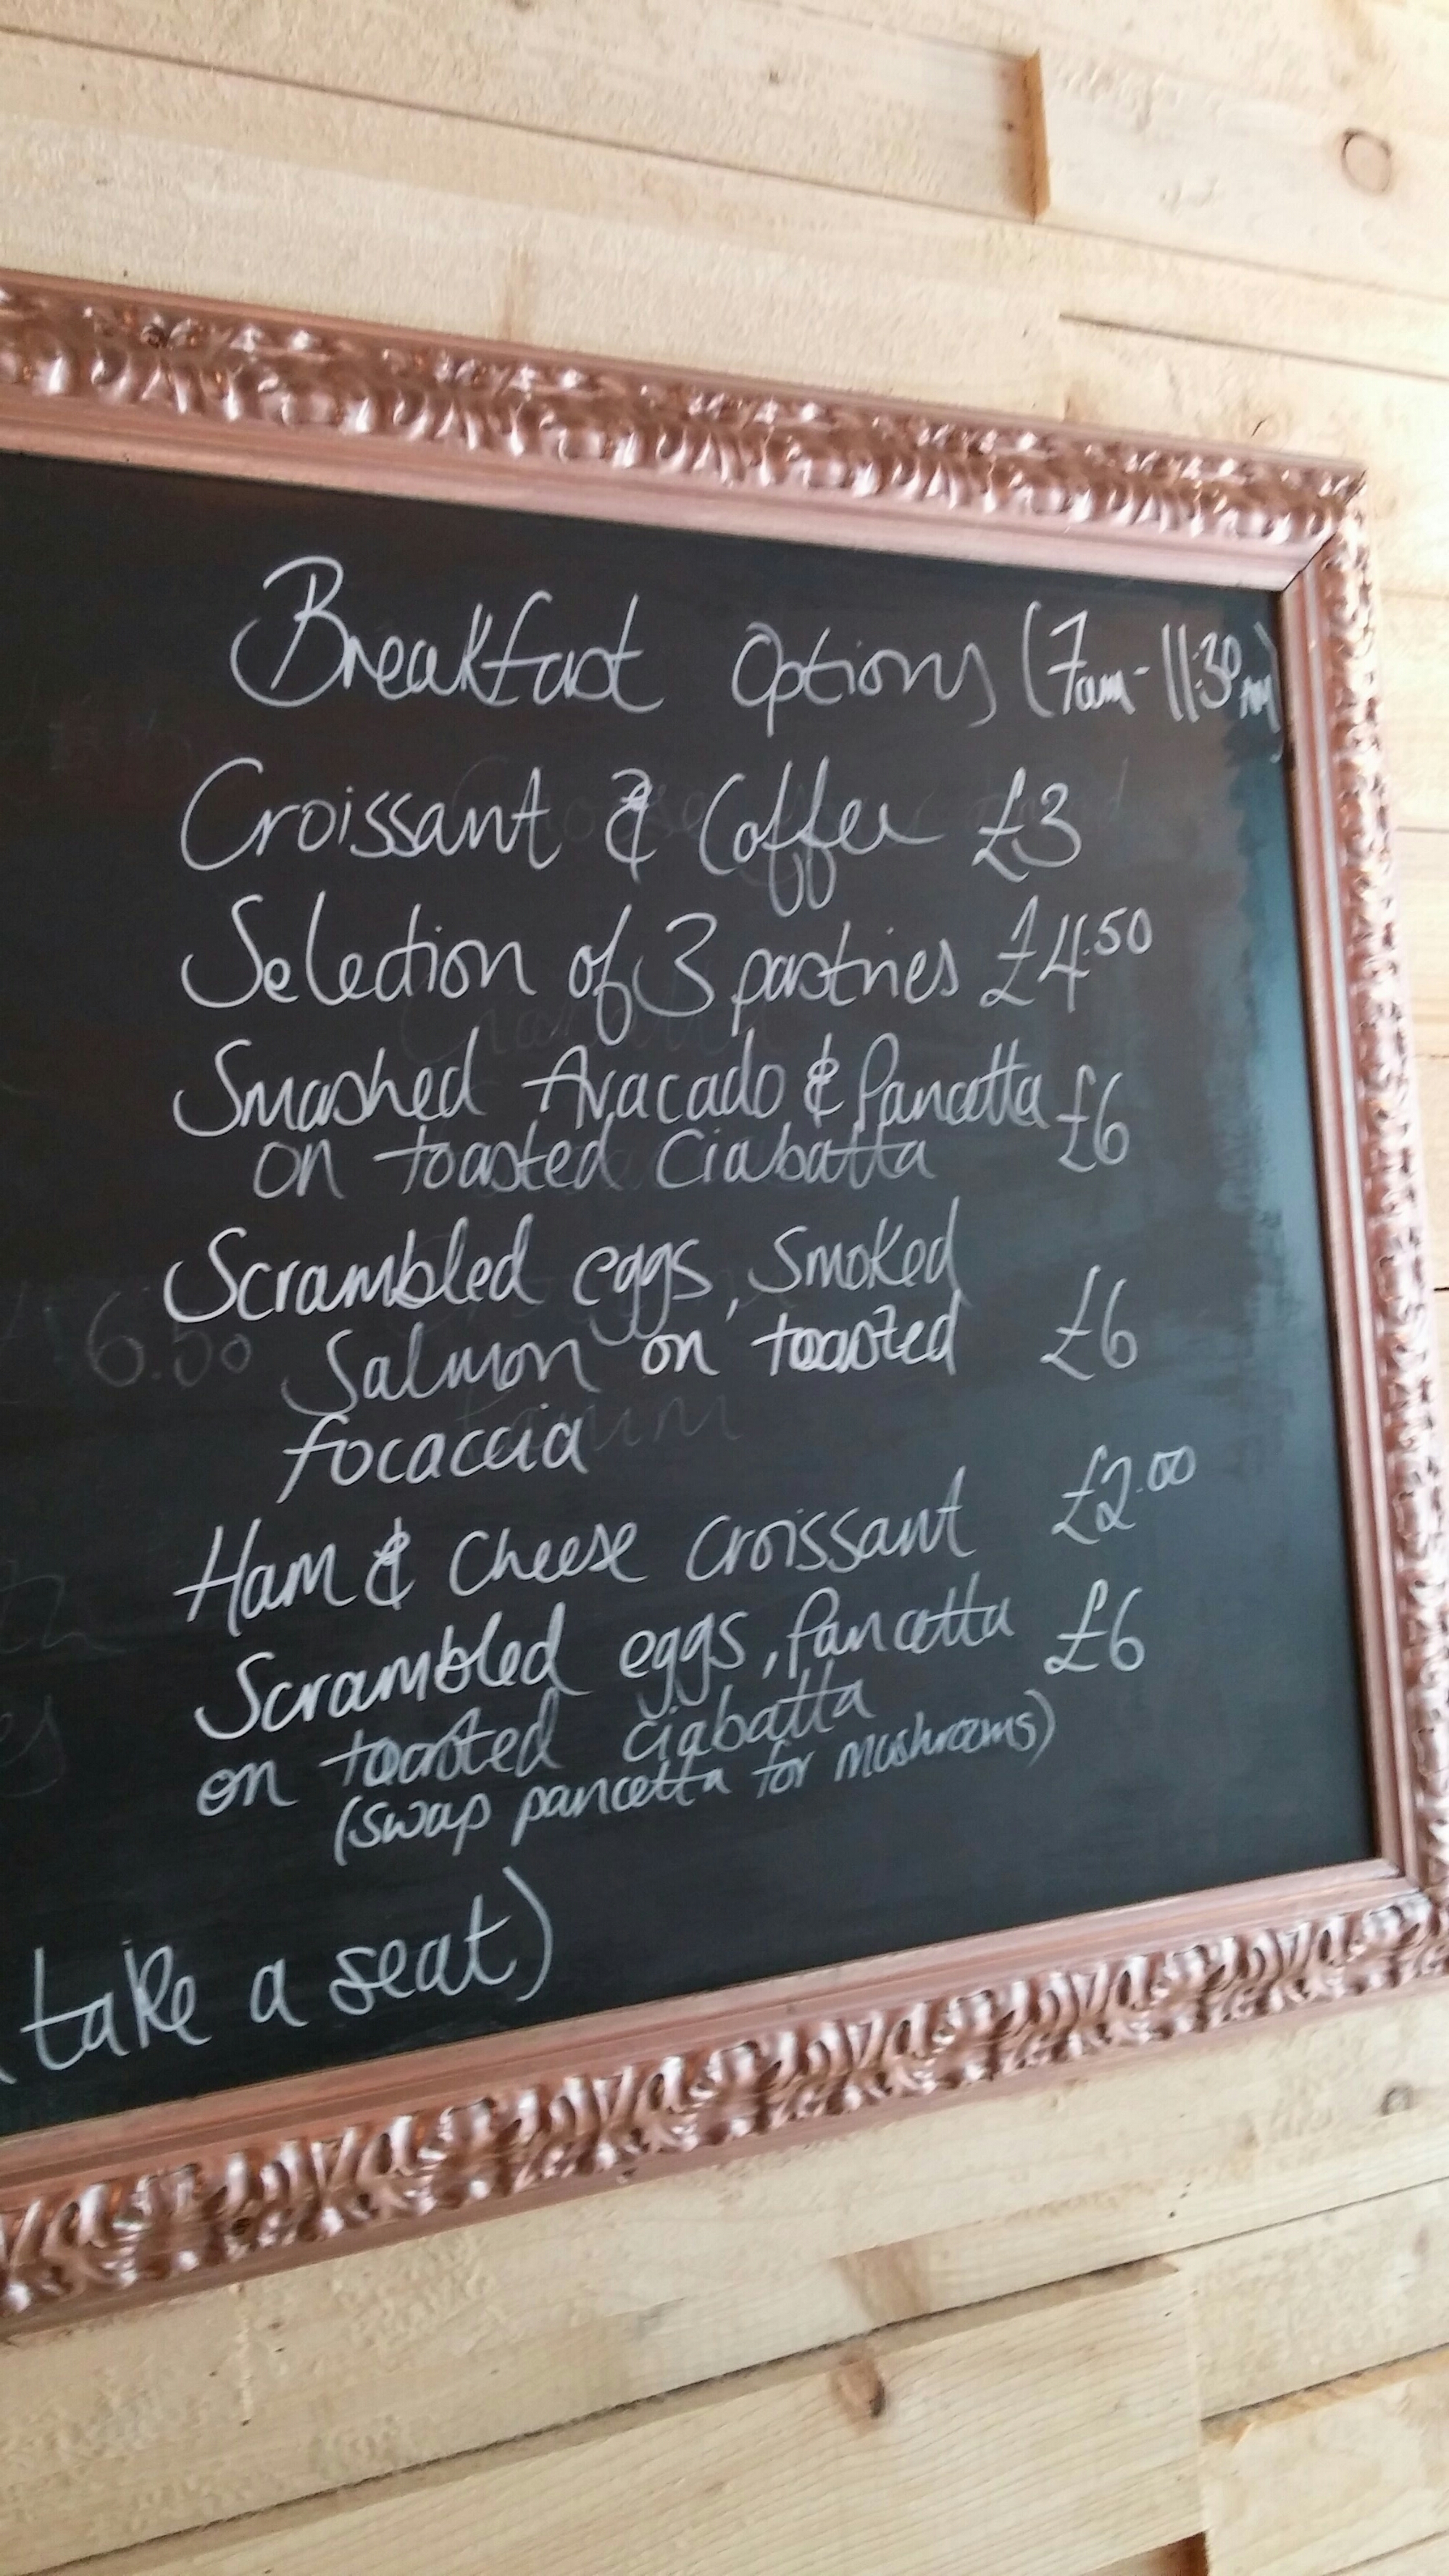 Breakfast Options (7am-11:30am)
Croissant & Coffee £3
Selection of 3 pastries £4.50
Smashed Avacado & Pancetta £6
on toasted Ciabatta
Scrambled eggs, Smoked
Salmon on toasted £6
focaccia
Ham & Cheese Croissant £2.00
Scrambled eggs, Pancetta £6
on toasted ciabatta
(swap pancetta for mushrooms)
(take a seat)
6.50